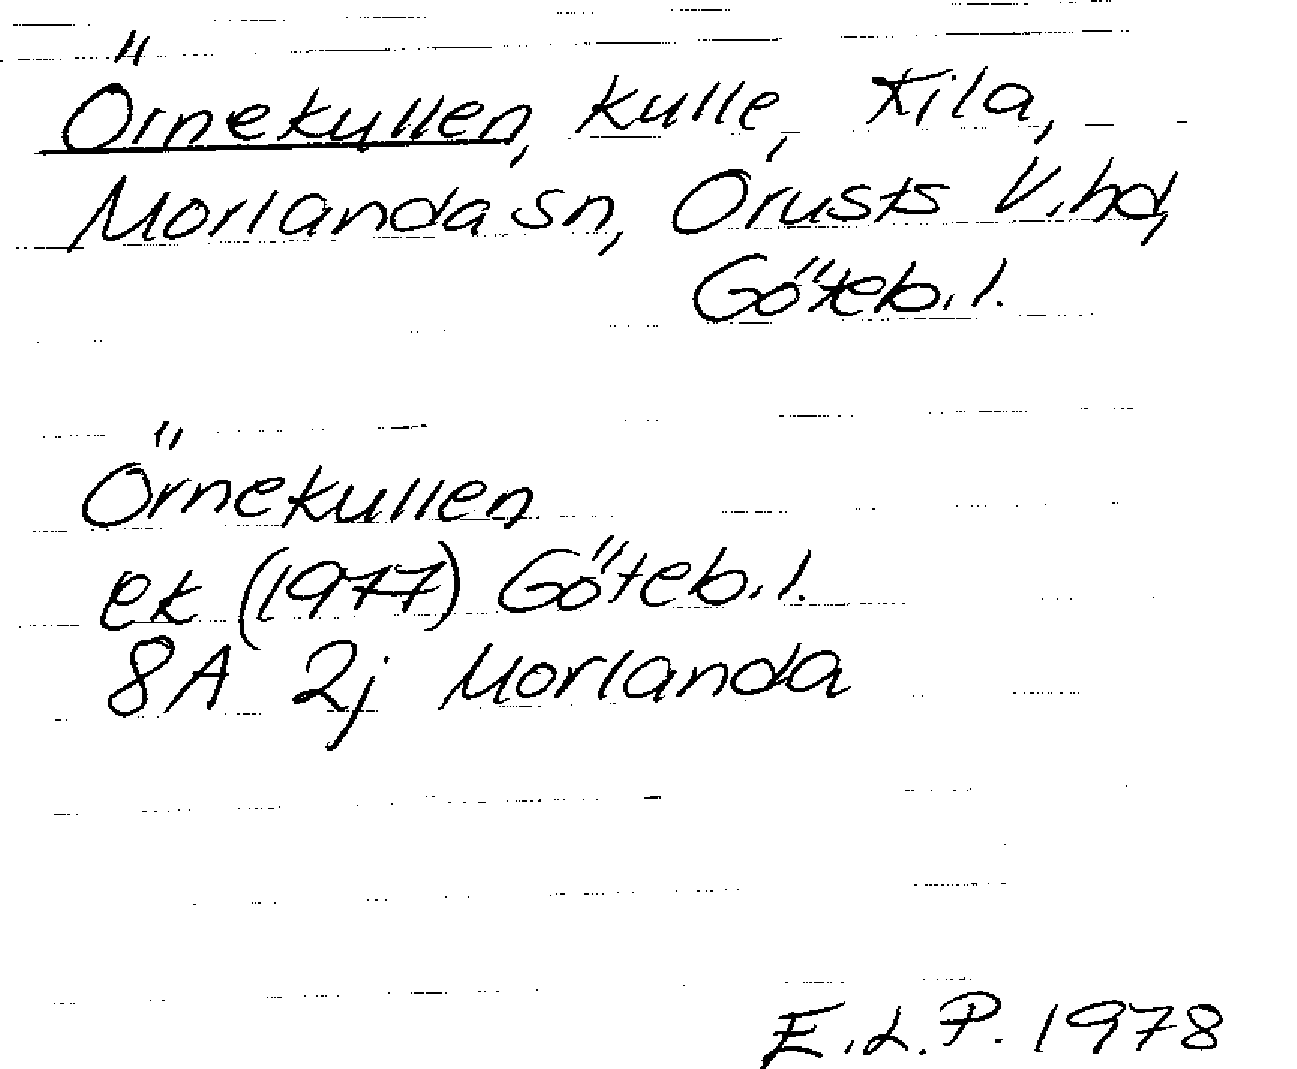 Örnekullen, kulle, Kila,
Morlanda sn, Orusts V. hd,
Göteb. l.
Örnekullen
ek (1977) Göteb. l.
8A 2j Morlanda
E. L. P. 1978